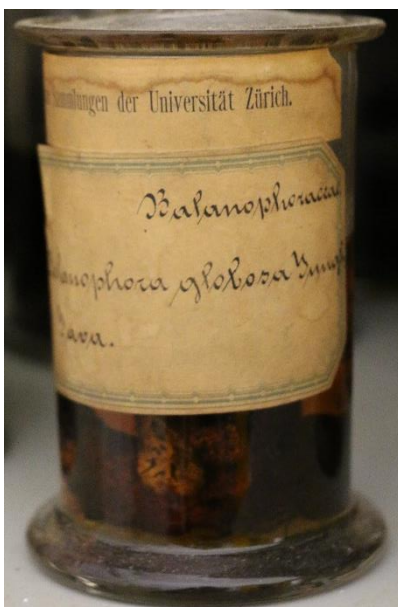 Sammlungen der Universität Zürich.
Balanophoraceae
Balanophora globosa Jungh
Java.